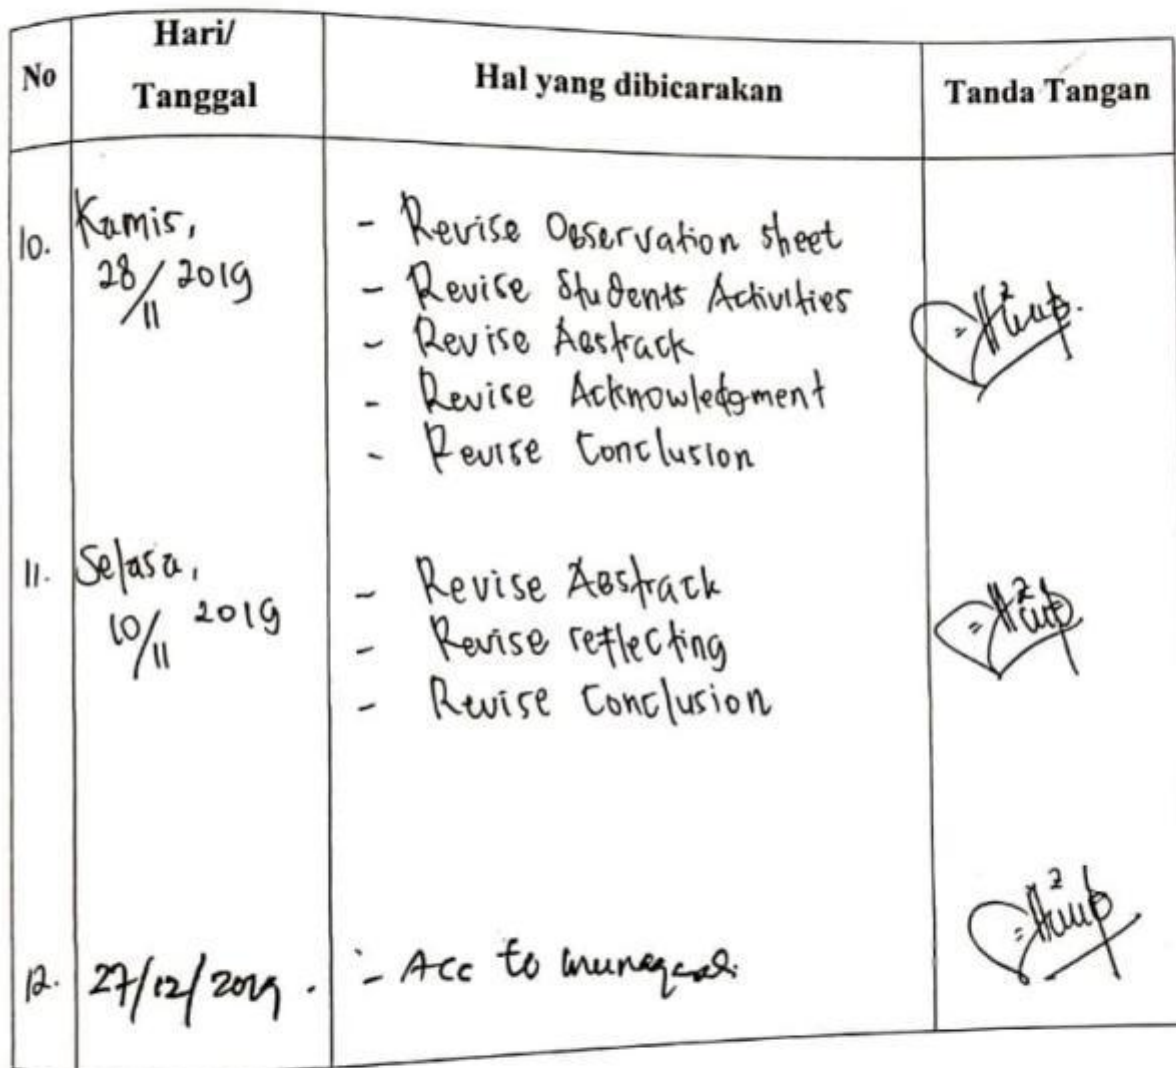 No
Hari/
Tanggal
Hal yang dibicarakan
Tanda Tangan
10.
Kamis,
28/11 2019
- Revise Observation sheet
- Revise Students Activities
- Revise Abstrack
- Revise Acknowledgment
- Revise Conclusion
11.
Selasa,
10/11 2019
- Revise Abstrack
- Revise reflecting
- Revise Conclusion
12.
27/12/2019.
- Acc to